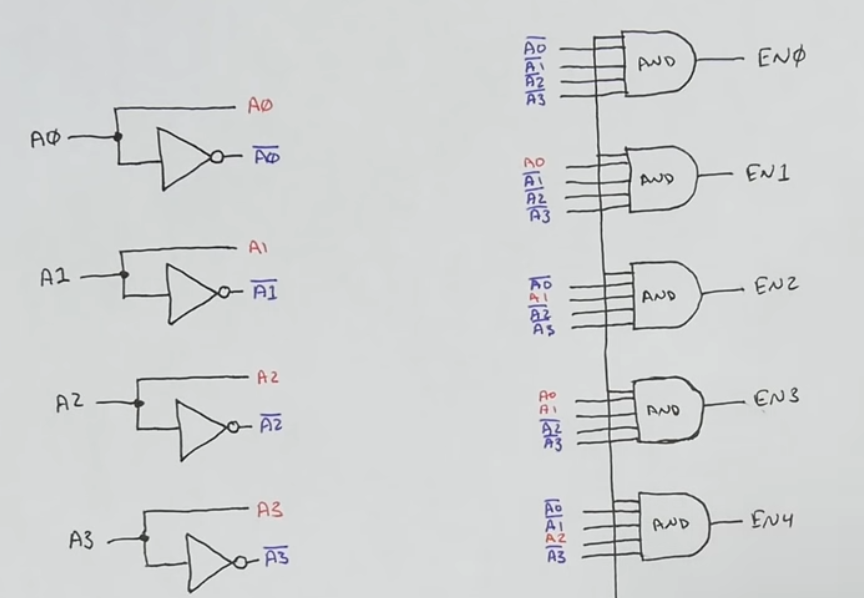 AØ
A0
A̅0̅
A1
A1
A̅1̅
A2
A2
A̅2̅
A3
A3
A̅3̅
A̅0̅
A̅1̅
A̅2̅
A̅3̅
AND
ENØ
A0
A̅1̅
A̅2̅
A̅3̅
AND
EN1
A̅0̅
A1
A̅2̅
A̅3̅
AND
EN2
A0
A1
A̅2̅
A̅3̅
AND
EN3
A̅0̅
A̅1̅
A2
A̅3̅
AND
EN4